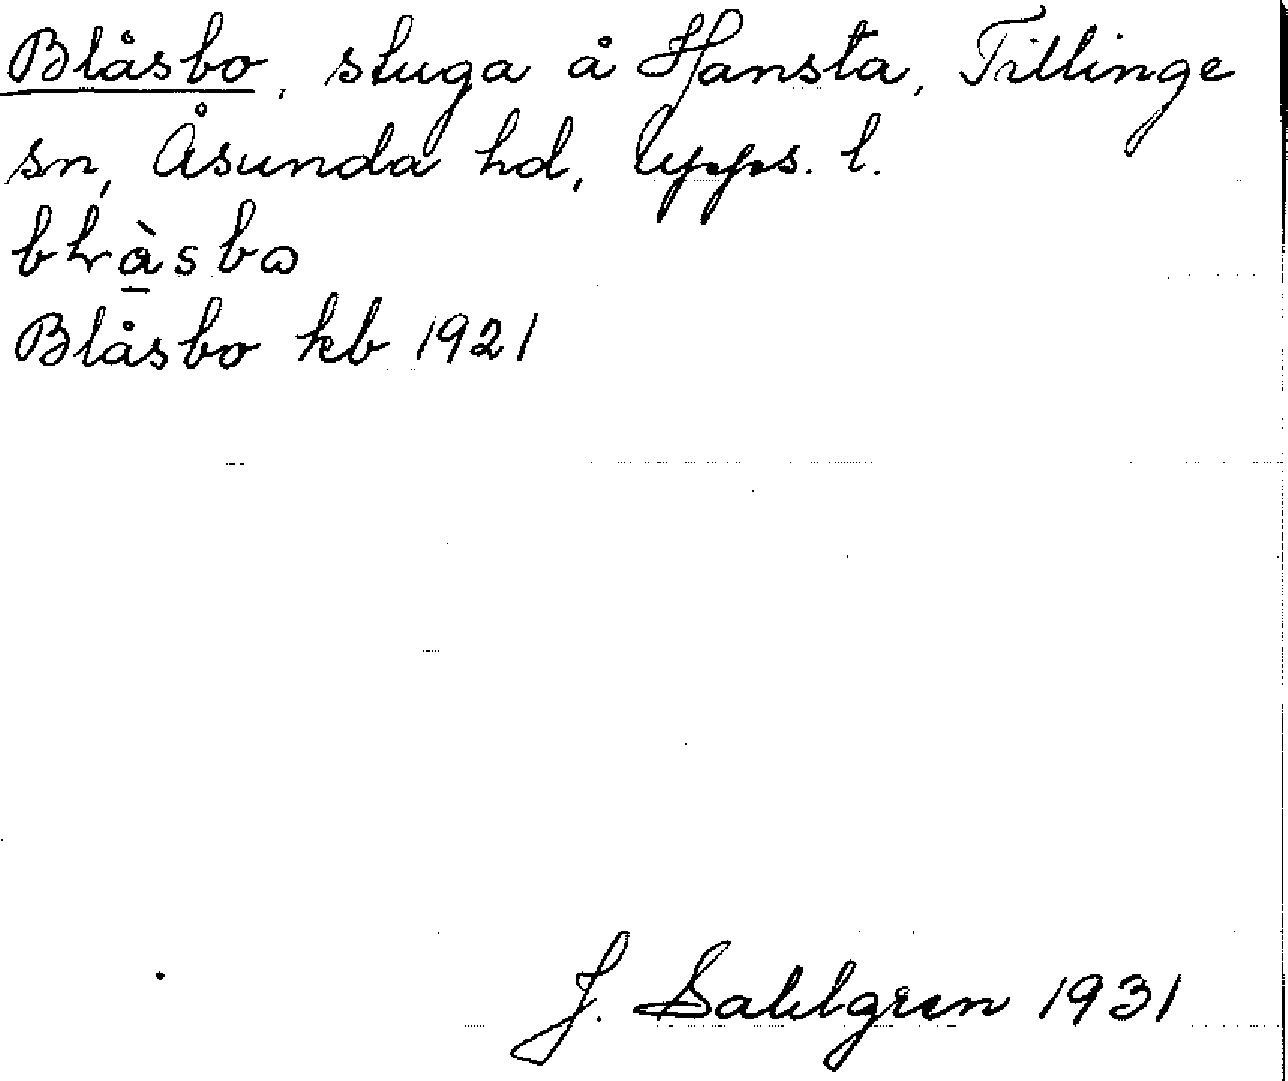 Blåsbo, stuga å Hansta, Tillinge
sn, Åsunda hd, Upps. l.
blràsbo
Blåsbo kb 1921
J. Sahlgren 1931